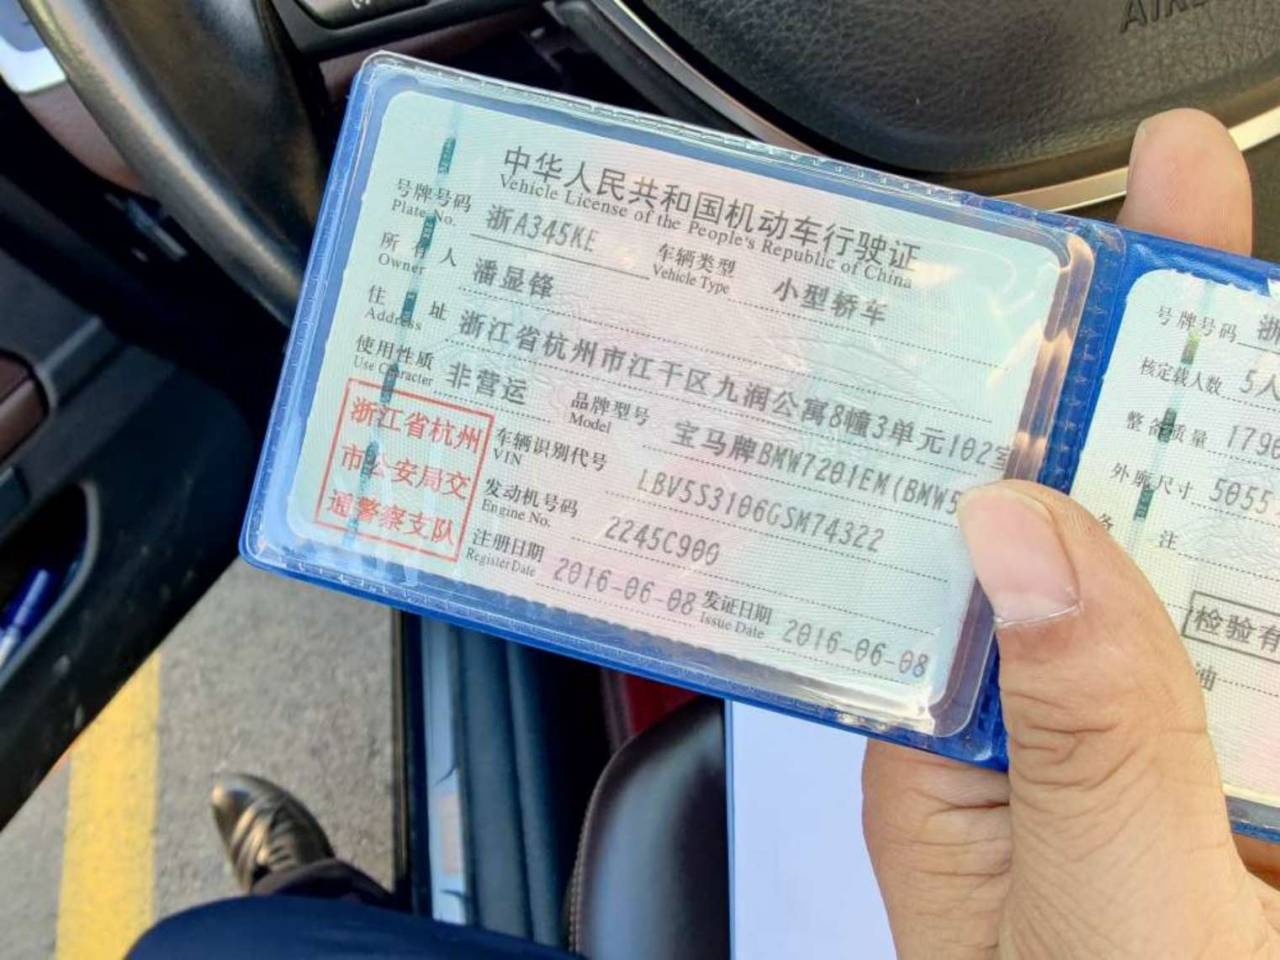 中华人民共和国机动车行驶证
Vehicle License of the People's Republic of China
号牌号码 浙A345KE 车辆类型 小型轿车
Plate No. Vehicle Type
所有人 潘显锋
Owner
住址 浙江省杭州市江干区九润公寓8幢3单元102室
Address
使用性质 非营运 品牌型号 宝马牌BMW7201EM(BMW5
Use Character Model
浙江省杭州
市公安局交
通警察支队
车辆识别代号 LBV5S3106GSM74322
VIN
发动机号码 2245C900
Engine No.
注册日期 2016-06-08 发证日期 2016-06-08
Register Date Issue Date
号牌号码 浙
核定载人数 5人
整备质量 1790
外廓尺寸 5055
备注
检验有
油